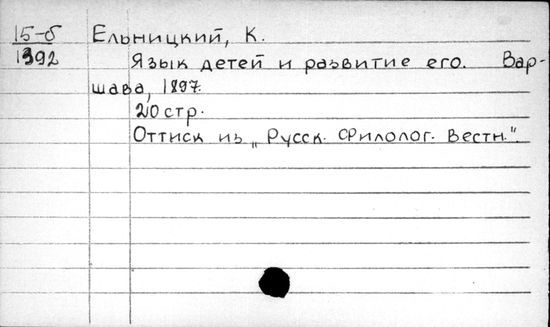 15-б Ельницкий, К.
1392 Язык детей и развитие его. Вар-
шава, 1897.
20 стр.
Оттиск из „Русск. Филолог. Вестн.".